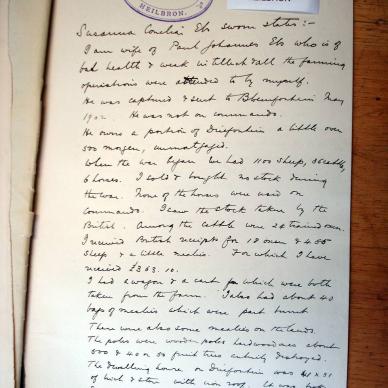 HEILBRON.
Susanna Cornelia Els sworn states:-
I am wife of Paul Johannes Els who is of
bad health & weak in intellect & all the farming
operations were attended to by myself.
He was captured & sent to Bloemfontein May
1902. He was not on commando.
He owns a portion of Driefontein a little over
500 morgen, unmortgaged.
When the war began we had 1100 sheep, 36 cattle,
6 horses. I sold & bought no stock during
the war. None of the horses were used on
commando. I saw the stock taken by the
British. Among the cattle were 20 trained oxen.
I received British receipts for 18 oxen & 450
sheep & a little mealies. For which I have
received £363.10.
I had a wagon & a cart for which were both
taken from the farm. I also had about 40
bags of mealies which were part burnt
There were also some mealies on the lands.
The poles were wooden poles hardwood ones about
500 & 40 or 50 fruit trees entirely destroyed.
The dwelling house on Driefontein was 41 x 31
of brick & stone with iron roof. It was